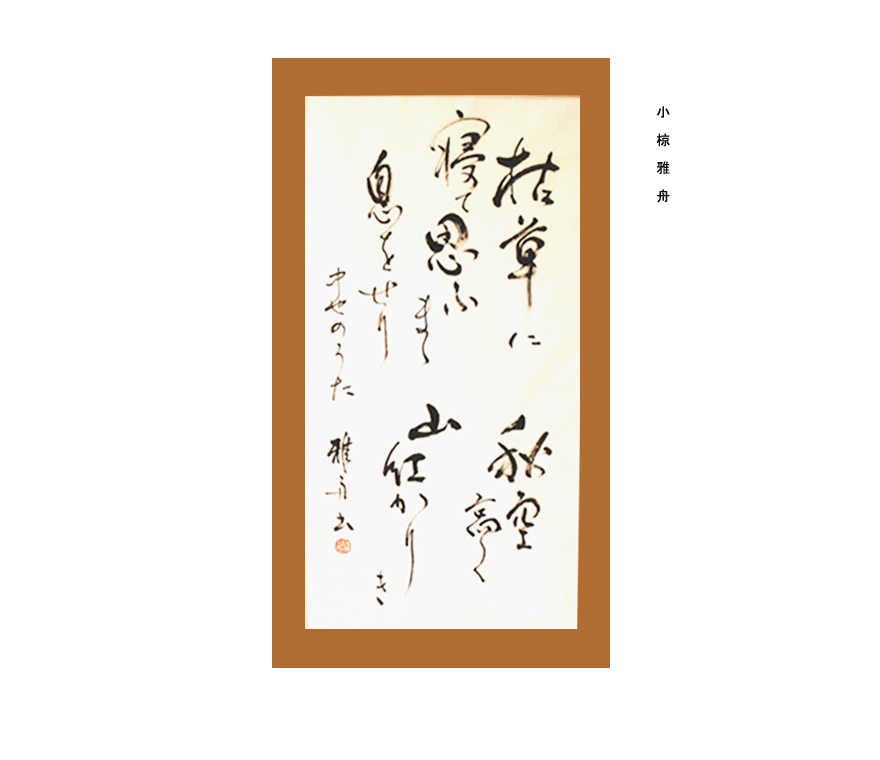 小椋雅舟
枯草に
寝て思ふ
まゝ
息をせり
秋空
高く
山
紅かりき
中世のうた 雅舟書